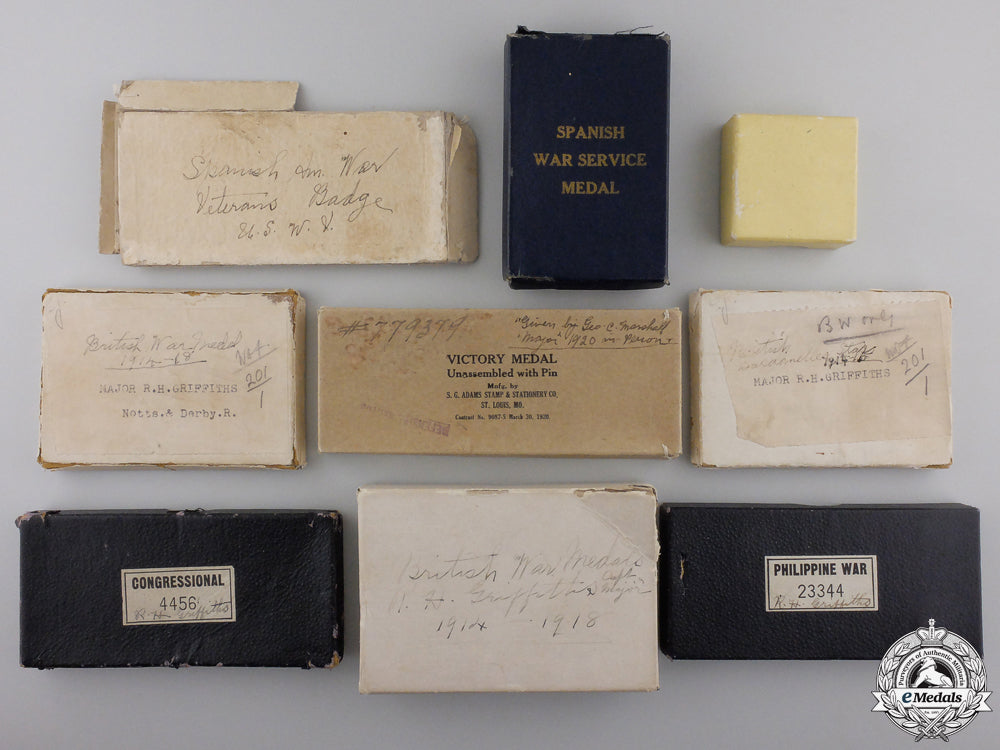 Spanish Am War
Veterans Badge
U. S. W. V.
SPANISH
WAR SERVICE
MEDAL
British War Medal
1914-18
MAJOR R.H.GRIFFITHS
Notts.& Derby.R.
201
1
#779379
"Given by Geo C. Marshall
"Major" 1920 in Person"
VICTORY MEDAL
Unassembled with Pin
Mofg. by
S. G. ADAMS STAMP & STATIONERY CO.
ST. LOUIS, MO.
Contract No. 9087-S March 30, 1920
BW only
British
Dardanelles Star
MAJOR R.H.GRIFFITHS
201
1
CONGRESSIONAL
4456
R. H. Griffiths
British War Medals
R. H. Griffiths Capt &
Major
1914 - 1918
PHILIPPINE WAR
23344
R. H. Griffiths
Purveyors of Authentic Militaria
eMedals